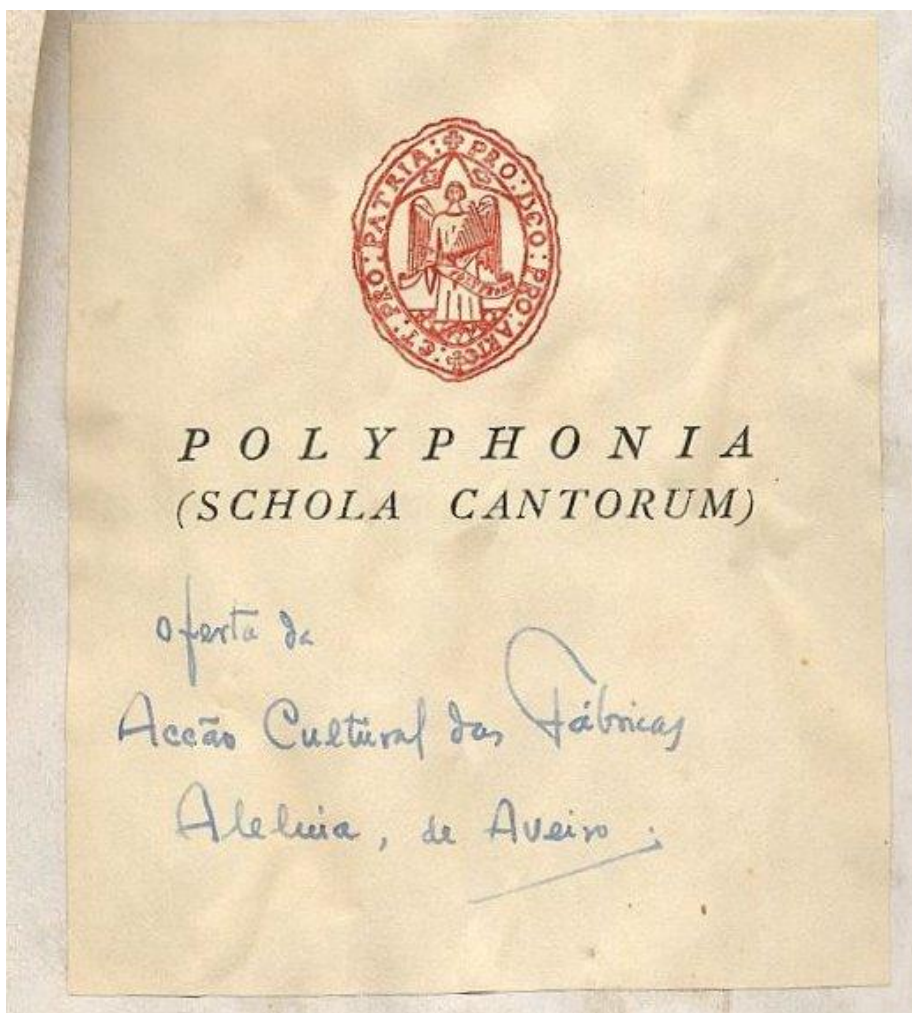 PRO : DEO : PRO : ARTE : ET : PRO : PATRIA :
POLYPHONIA
POLYPHONIA
(SCHOLA CANTORUM)
oferta da
Acção Cultural das Fábricas
Aleluia, de Aveiro.